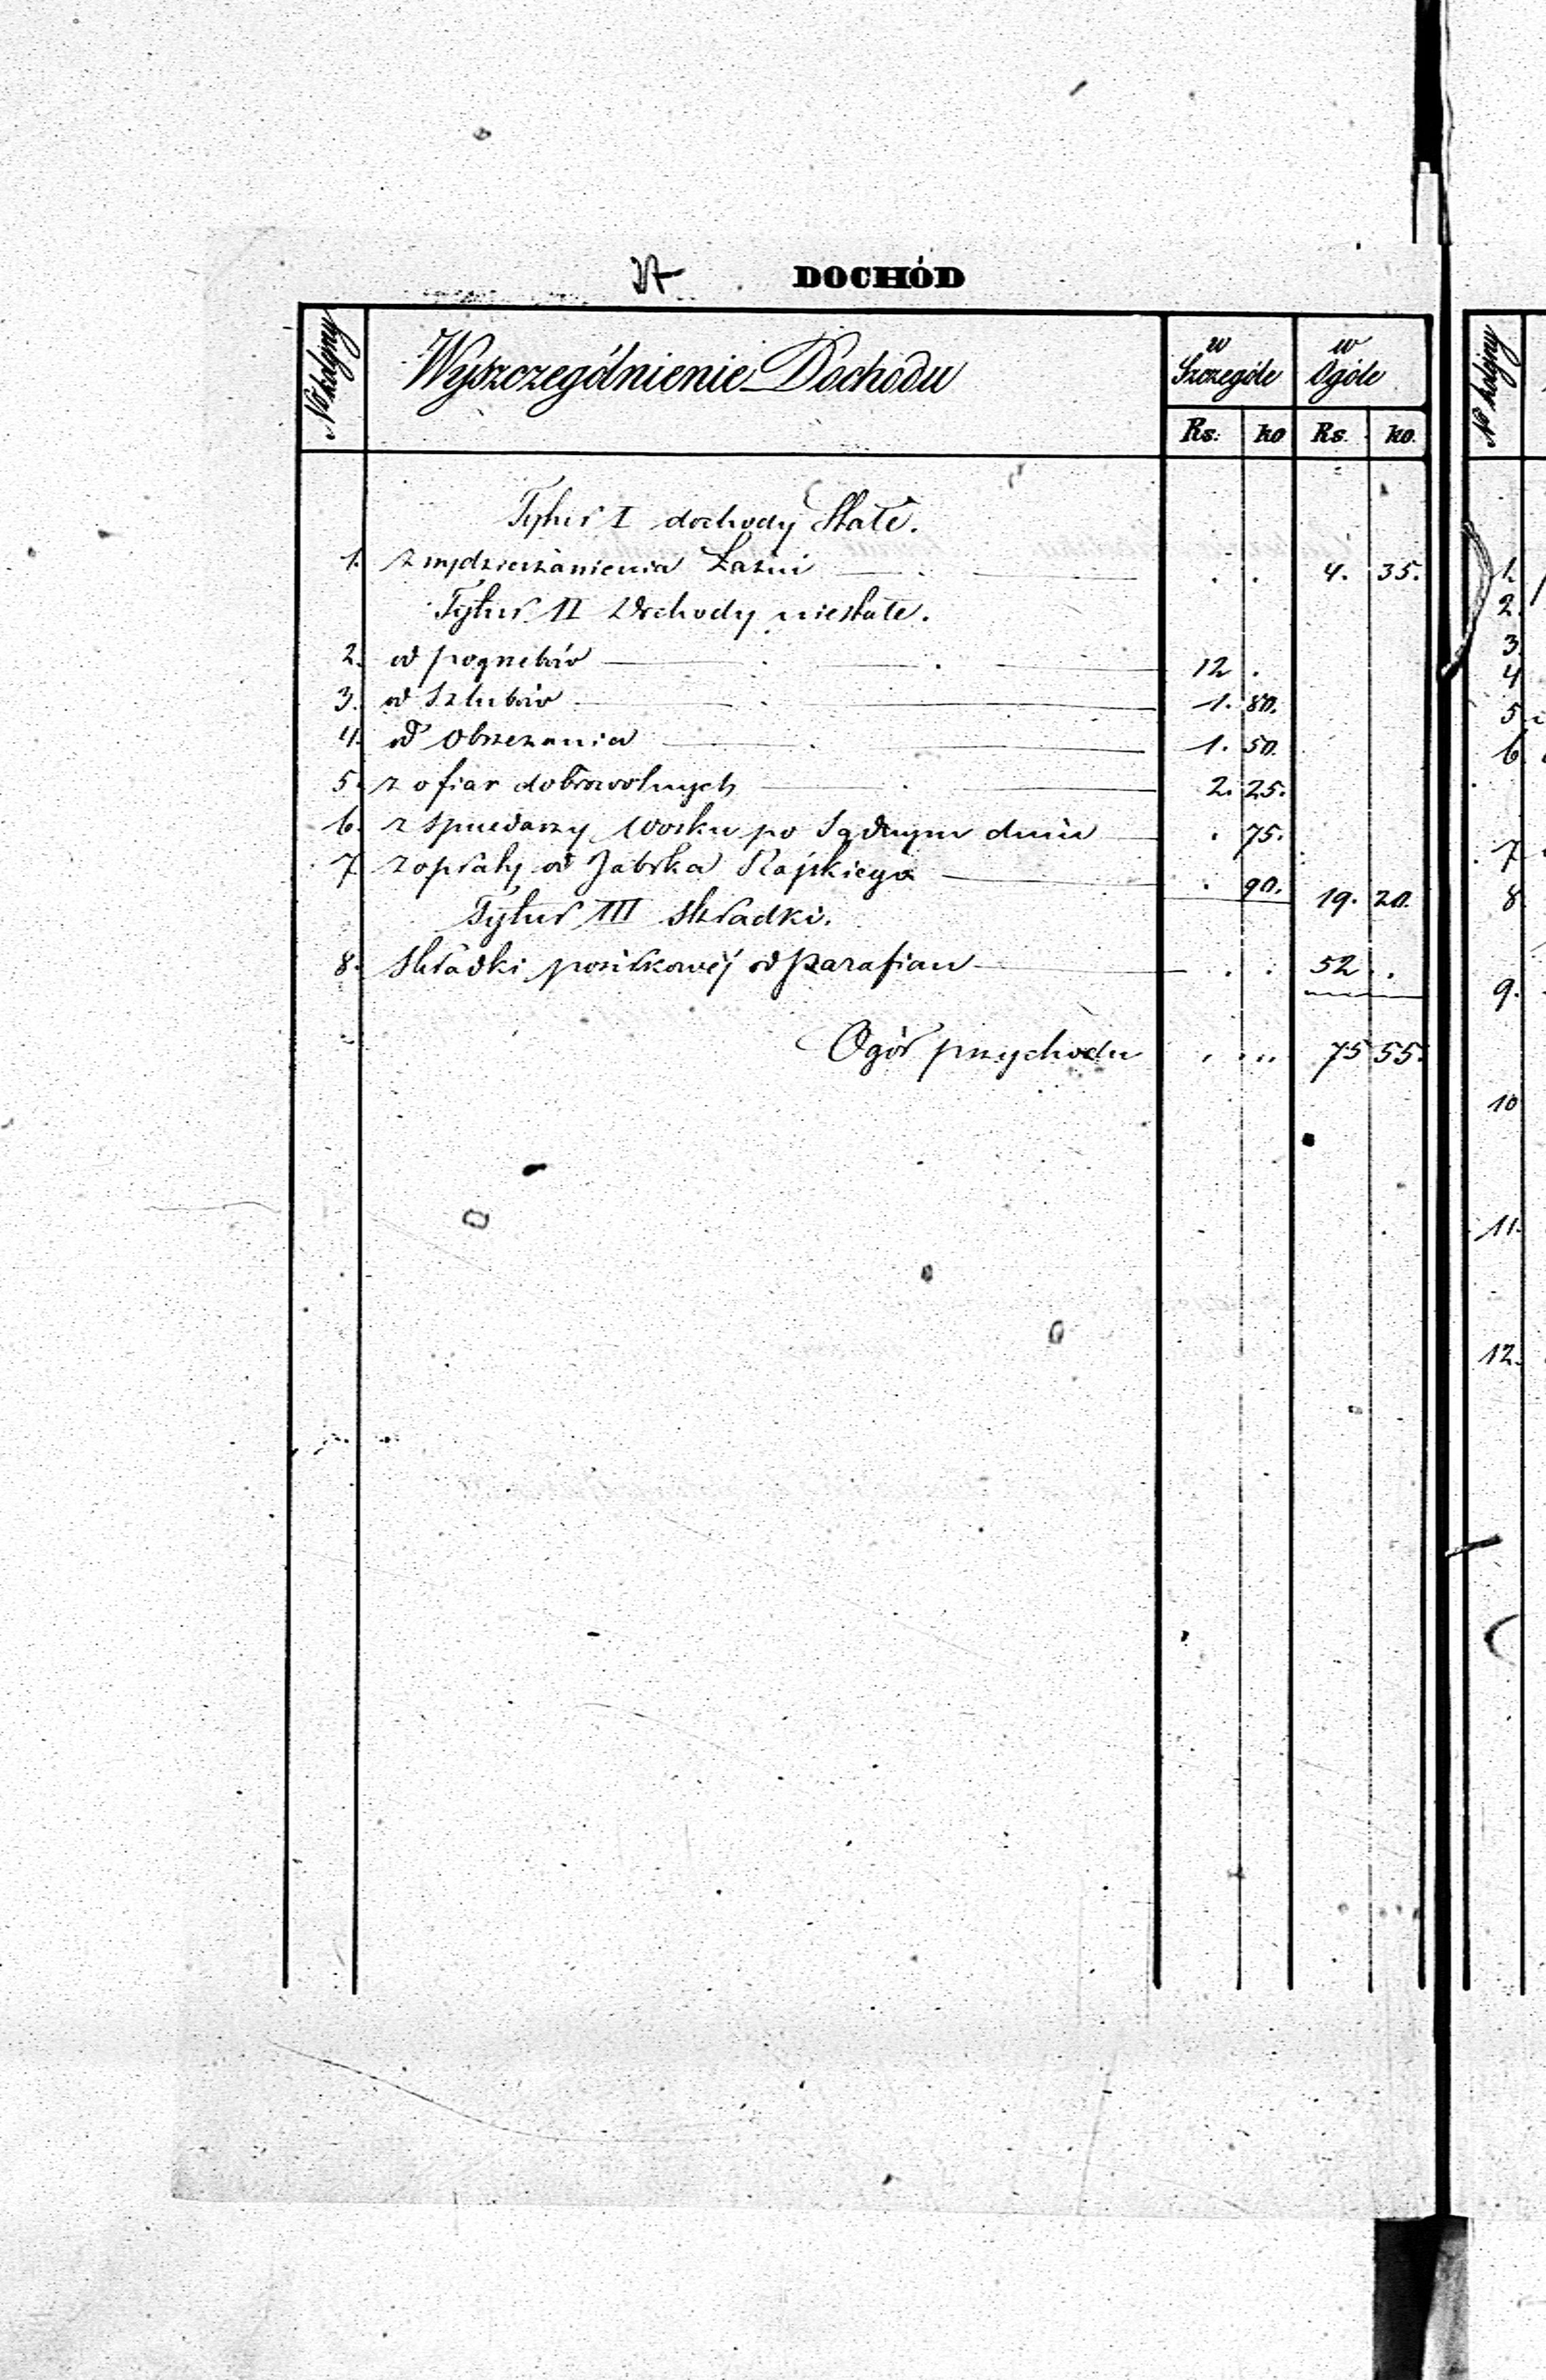 DOCHÓD
No kolejny Wyszczególnienie Dochodu w Szczególe w Ogóle
Rs. ko Rs. ko.
Tytuł I dochody Stałe.
1. z wydzierżawienia Łaźni . . 4. 35.
Tytuł II Dochody niestałe.
2. od pogrzebów 12 .
3. od Szlubów 1. 80.
4. od Obrzezania 1. 50.
5. z ofiar dobrowolnych 2. 25.
6. z Sprzedaży Wosku po Sądnym dniu . 75.
7. z opłaty od Jabłka Rajskiego . 90. 19. 20.
Tytuł III Składki.
8. Składki posiłkowéj od Parafian . . 52 .
Ogół przychodu . ... 75 55.
No kolejny
1.
2.
3.
4
5
6
7
8
9.
10
11.
12.